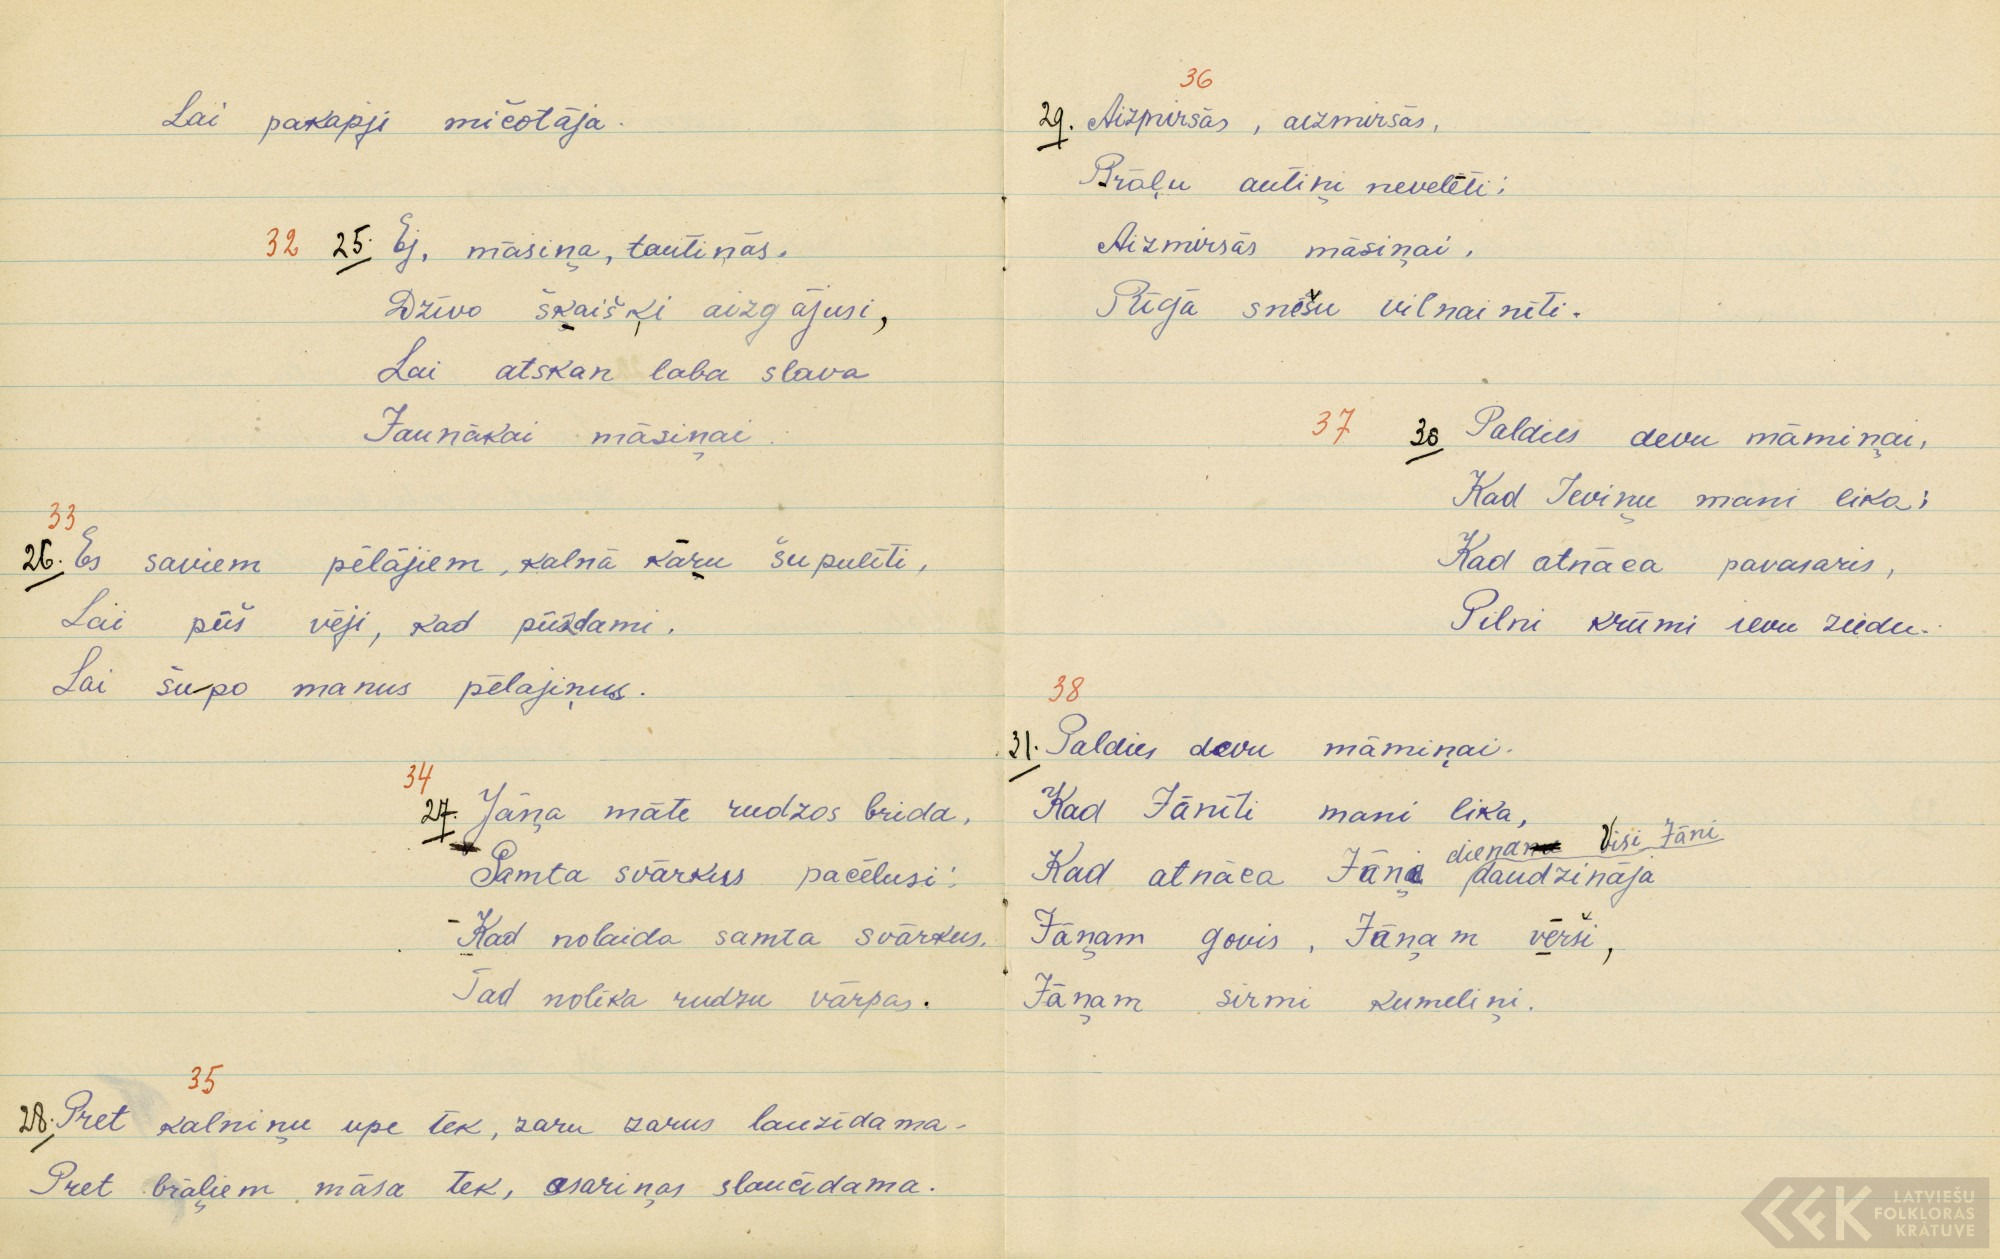 Lai pakāpji mičotāja.
32 25. Ej, māsiņa, tautiņās,
Dzīvo šķaišķi aizgājusi,
Lai atskan laba slava
Jaunākai māsiņai.
33
26. Es saviem pēlājiem, kalnā kāru šupulīti,
Lai pūš vēji, kad pūzdami.
Lai šupo manus pēlājiņus.
34
27. Jāņa māte rudzos brida,
Samta svārkus pacēlusi;
Kad nolaida samta svārkus,
Tad nolīka rudzu vārpas.
35
28. Pret kalniņu upe tek, zaru zarus lauzīdama.
Pret brāļiem māsa tek, asariņas slaucīdama.
36
29. Aizmirsās, aizmirsās,
Brāļu autiņi nevelēti;
Aizmirsās māsiņai,
Rīgā snēšu vilnainīti.
37 30 Paldies devu māmiņai,
Kad Ieviņu mani lika;
Kad atnāca pavasaris,
Pilni krūmi ievu ziedu.
38
31. Paldies devu māmiņai.
Kad Jānīti mani lika,
dienā Visi Jāņi
Kad atnāca Jāņi daudzināja
Jāņam govis, Jāņam vērši,
Jāņam sirmi kumeliņi.
LATVIEŠU
FOLKLORAS
KRĀTUVE